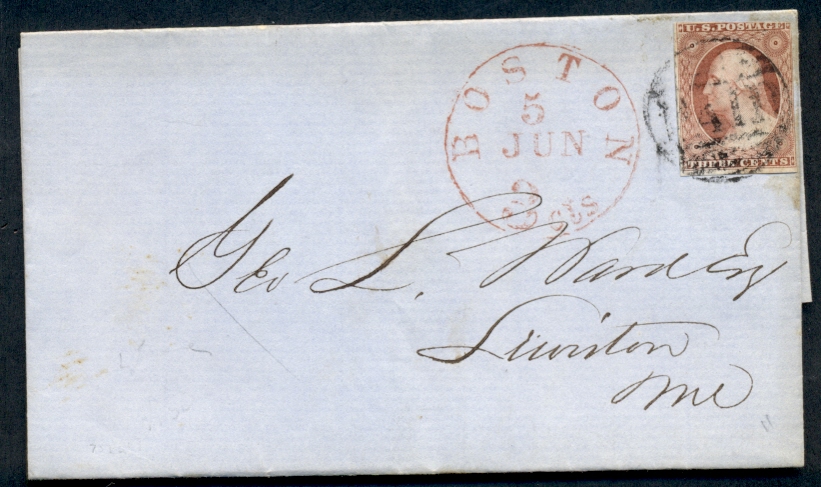 U.S. POSTAGE
THREE CENTS
BOSTON
5
JUN
3 cts
Geo L. Ward Esq
Lewiston
Me